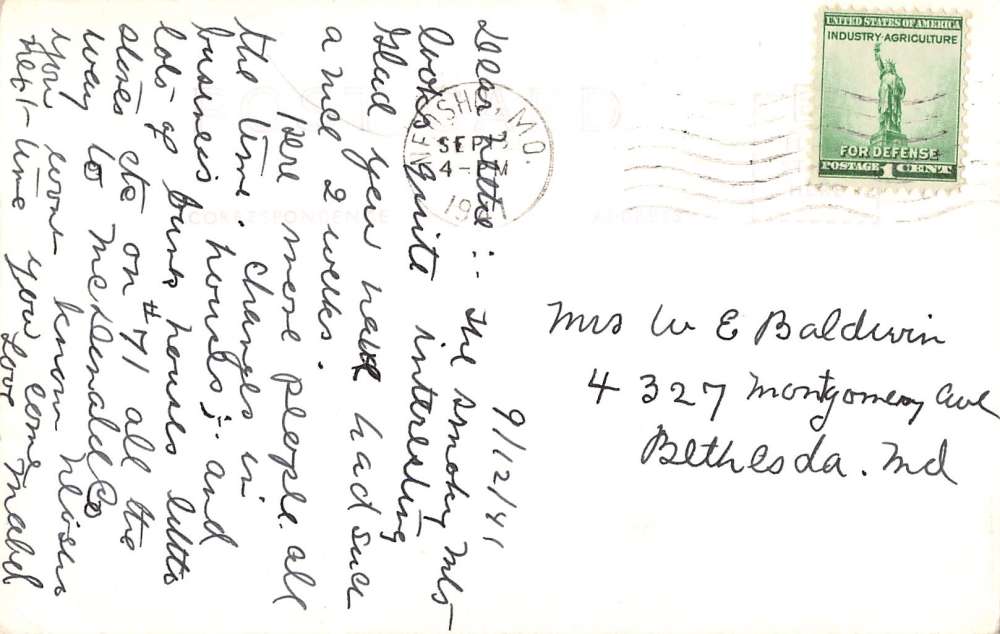 9/12/41
Dear :. The Smoky Mts
looks quite interesting
Glad you have had such
a nice 2 weeks.
Here more people. all
the time. Changes in
business houses; and
lots of farm houses little
stores etc on #71 all the
way to McDonald Co
you wont know Neosho
next time you come
Love Mabel
NEOSHO, MO.
SEP
4- M
19
UNITED STATES OF AMERICA
INDUSTRY-AGRICULTURE
FOR DEFENSE
POSTAGE 1 CENT
CORRESPONDENCE
ADDRESS
Mrs W E Baldwin
4327 Montgomery Ave
Bethesda. Md